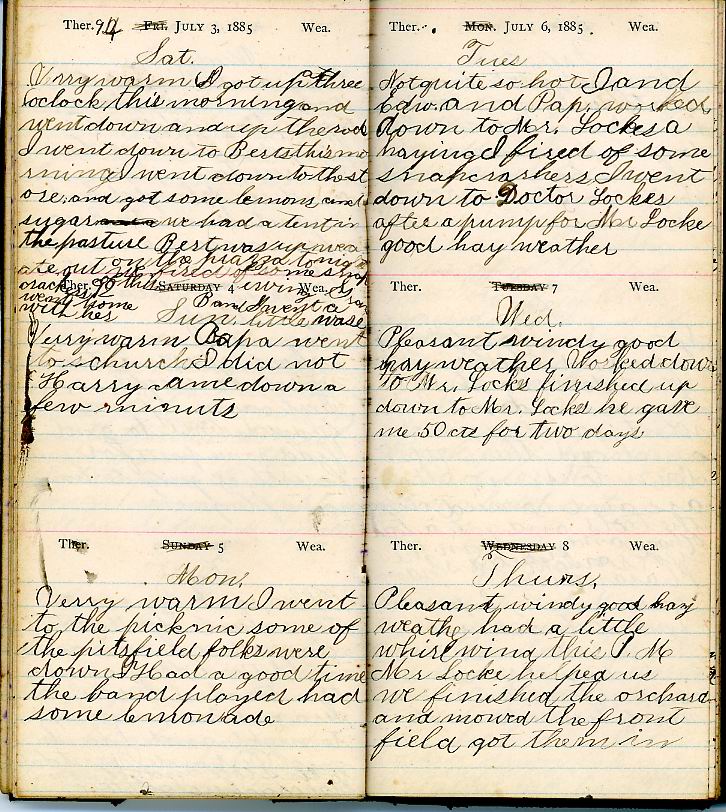 Ther. 94 Fri. July 3, 1885 Wea.
Sat.
Verry warm I got up at three
oclock this morning and
went down and up the rod
I went down to Berts this mo
rning I went down to the st
ore and got some lemons and
sugar we had a tent in
the pasture Bert was up we a
ate out on the piaza tonight
we fired of some snap
crackers this evning
Ther. 92 Saturday 4 Wea.
went home
with hes
Band went a
Sun. little wase
Verry warm Papa went
to church I did not
Harry came down a
few minuts
Ther. Sunday 5 Wea.
Mon.
Verry warm I went
to the picknic some of
the pitsfield folks were
down I Had a good time
the band played had
some lemonade
Ther. Mon. July 6, 1885 Wea.
Tues
Not quite so hot I and
Edw. and Pap. worked
down to Mr. Lockes a
haying I fired of some
snap crackers I went
down to Doctor Lockes
after a pump for Mr Locke
good hay weather
Ther. Tuesday 7 Wea.
Wed.
Pleasant windy good
hay weather Worked down
to Mr. Locks finished up
down to Mr. Locks he gave
me 50 cts for two days
Ther. Wednesday 8 Wea.
Thurs.
Pleasant windy good hay
weathe had a little
whirl wing this P M
Mr Locke helped us
we finished the orchard
and mowed the front
field got them in